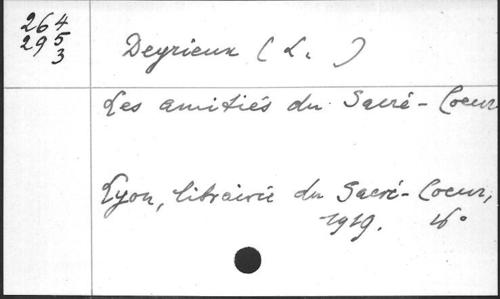 264
295
3
Deyrieux (L. )
Les amitiés du Sacré-Coeur
Lyon, librairie du Sacré-Coeur,
1919. 16°